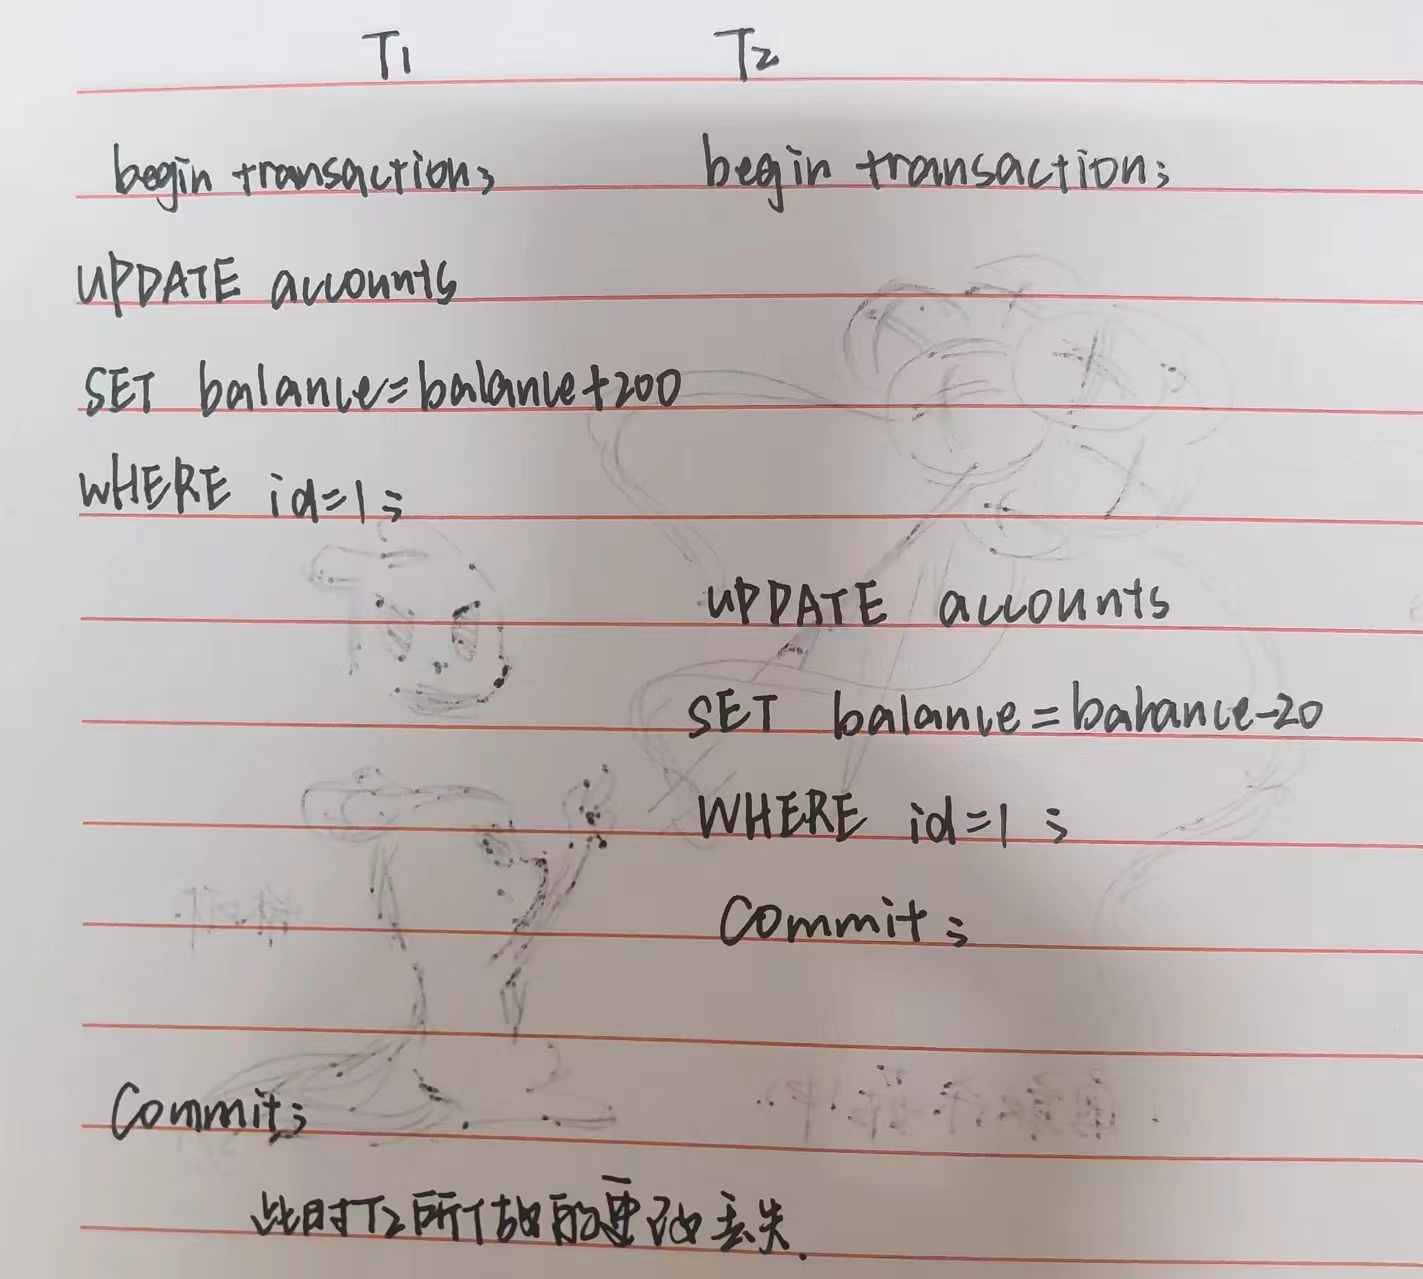 T1 T2
begin transaction; begin transaction;
UPDATE accounts
SET balance=balance+200
WHERE id=1;
UPDATE accounts
SET balance=bahance-20
WHERE id=1;
Commit;
Commit;
此时T2所做的更改丢失.